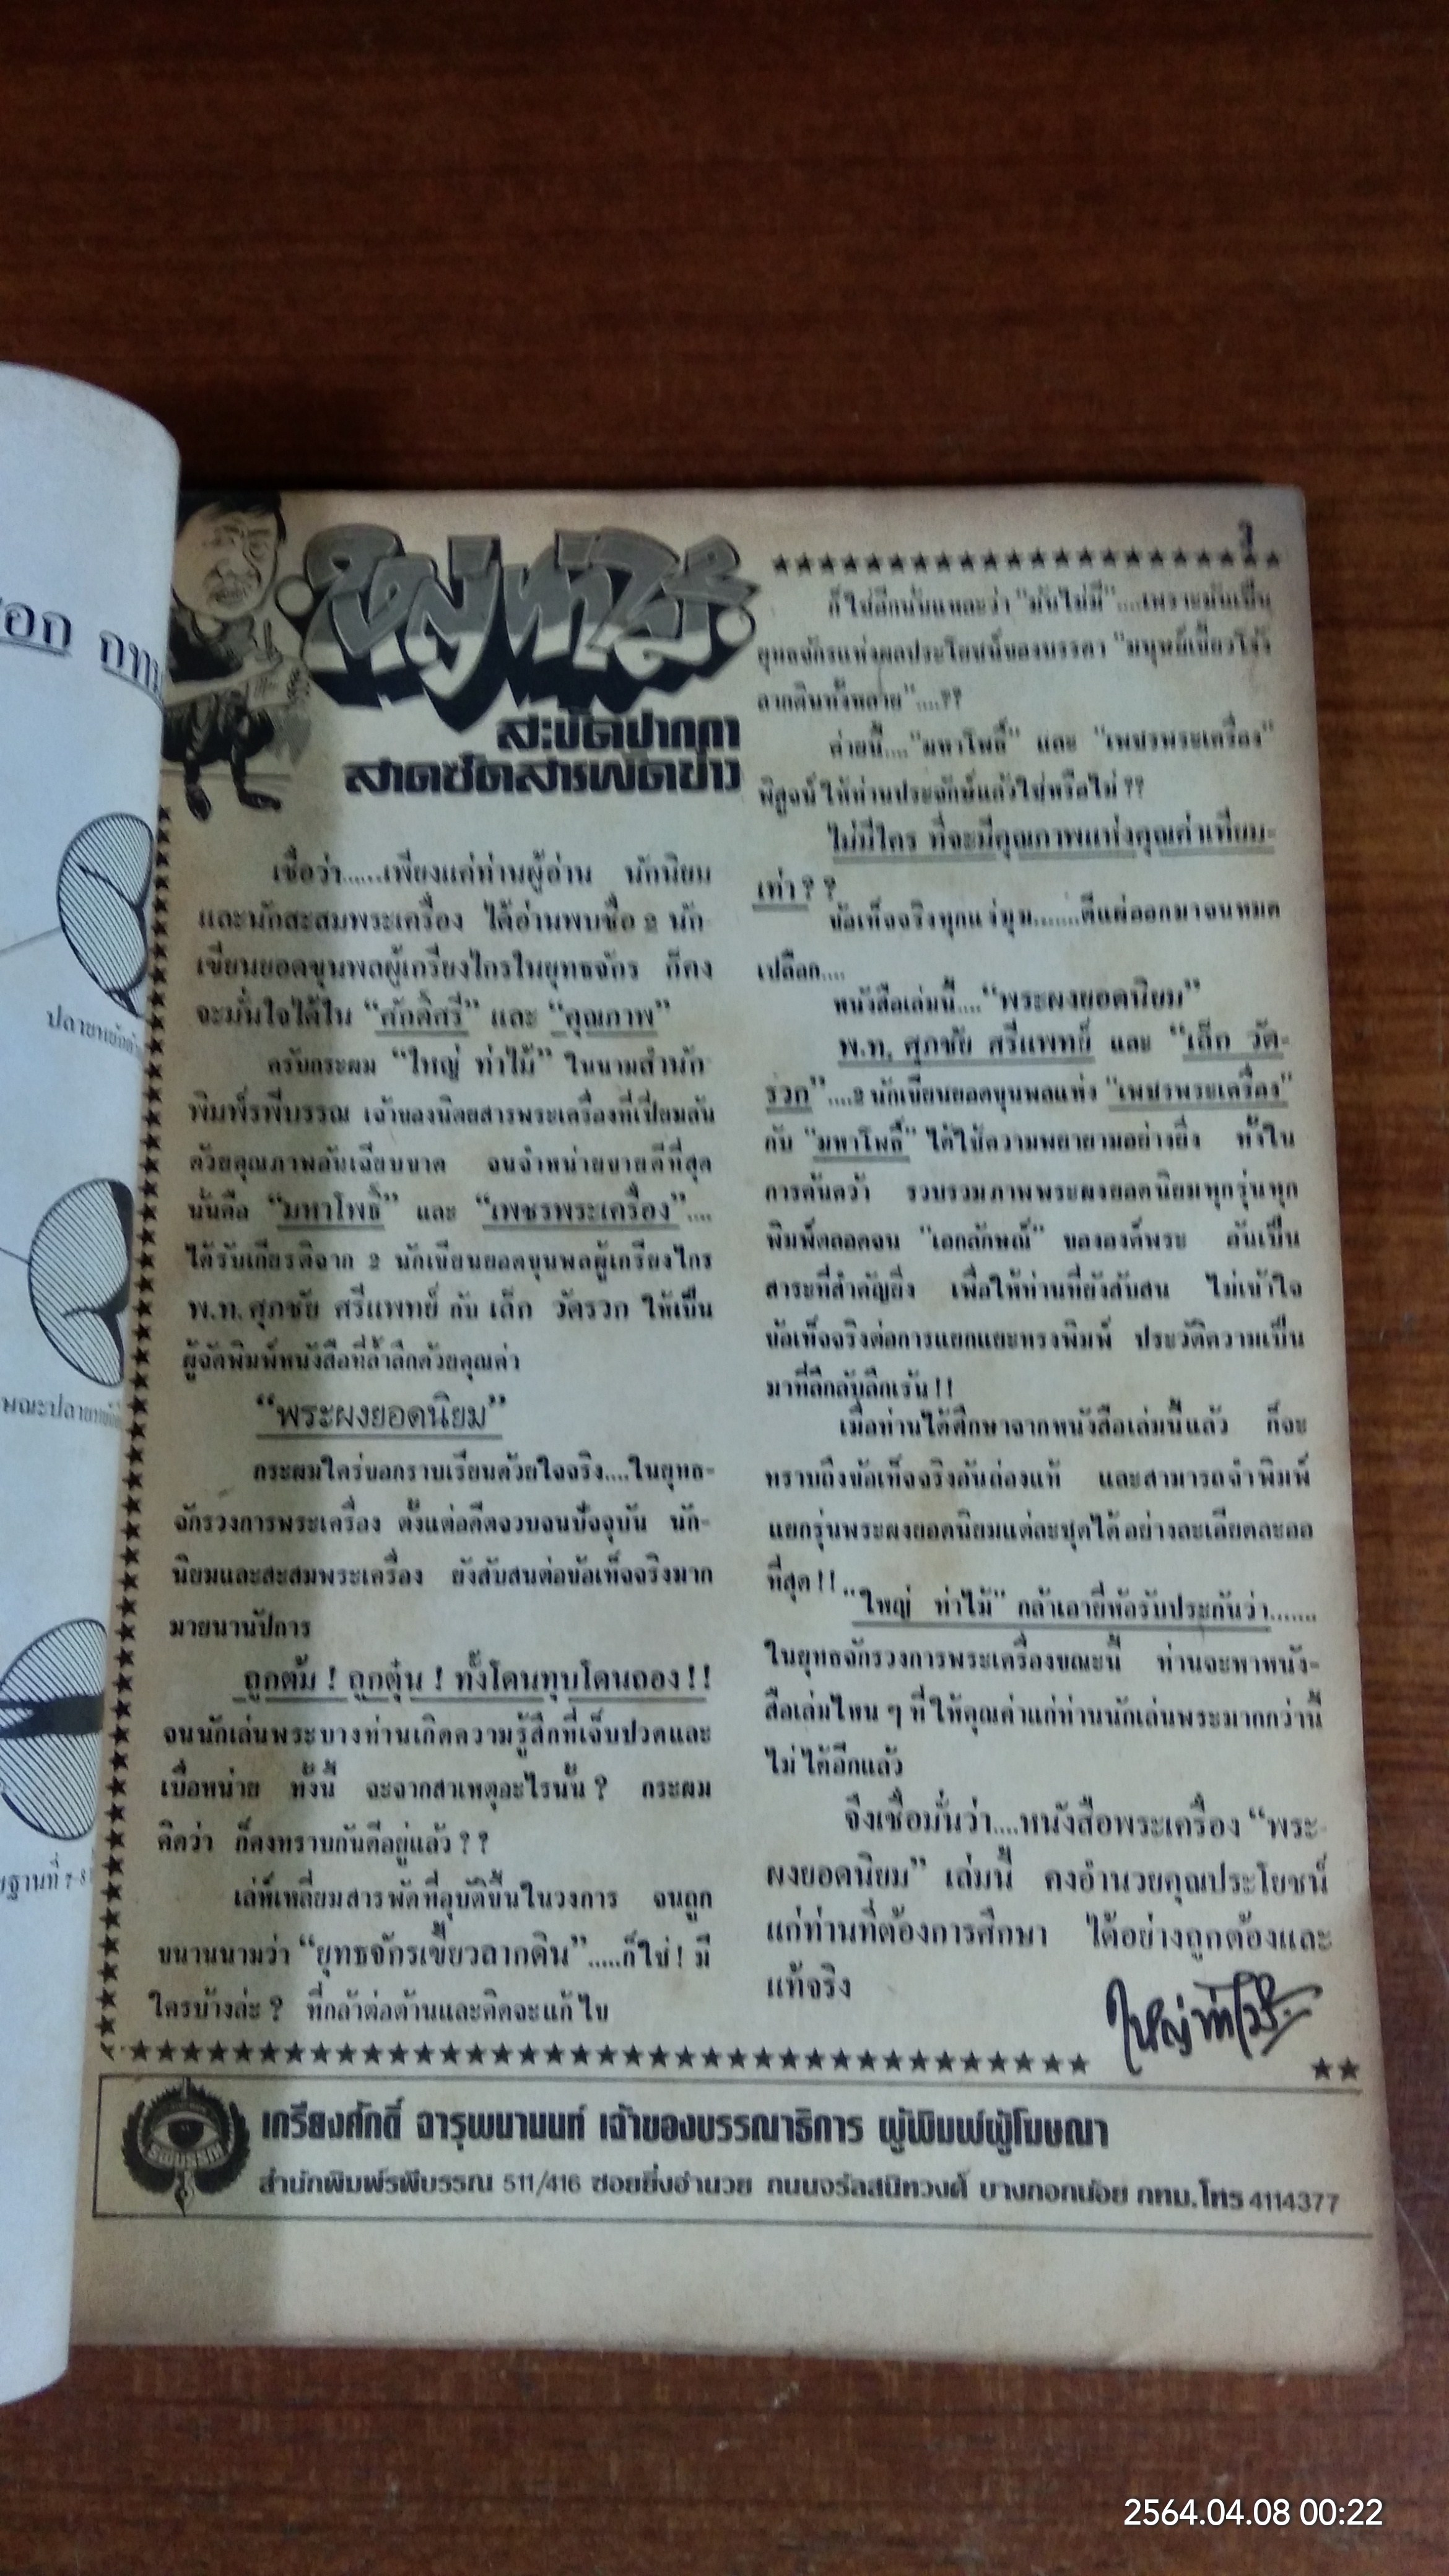 ใหญ่ท่าไม้
สะบัดปากกา
สาดซัดสารพัดข่าว
เชื่อว่า......เพียงแค่ท่านผู้อ่าน นักนิยม
และนักสะสมพระเครื่อง ได้อ่านพบชื่อ 2 นัก-
เขียนยอดขุนพลผู้เกรียงไกรในยุทธจักร ก็คง
จะมั่นใจได้ใน “ศักดิ์ศรี” และ “คุณภาพ”
ครับกระผม “ใหญ่ ท่าไม้” ในนามสำนัก
พิมพ์รพีบรรณ เจ้าของนิตยสารพระเครื่องที่เปี่ยมล้น
ด้วยคุณภาพลับเฉียบขาด จนจำหน่ายขายดีที่สุด
นั่นคือ “มหาโพธิ์” และ “เพชรพระเครื่อง”....
ได้รับเกียรติจาก 2 นักเขียนยอดขุนพลผู้เกรียงไกร
พ.ท. ศุภชัย ศรีแพทย์ กับ เล็ก วัดรวก ให้เป็น
ผู้จัดพิมพ์หนังสือที่ล้ำลึกด้วยคุณค่า
“พระผงยอดนิยม”
กระผมใคร่บอกราบเรียนด้วยใจจริง....ในยุทธ-
จักรวงการพระเครื่อง ตั้งแต่อดีตจวบจนปัจจุบัน นัก-
นิยมและสะสมพระเครื่อง ยังสับสนต่อข้อเท็จจริงมาก
มายนานัปการ
ถูกต้ม ! ถูกตุ๋น ! ทั้งโดนทุบโดนถอง !!
จนนักเล่นพระบางท่านเกิดความรู้สึกที่เจ็บปวดและ
เบื่อหน่าย ทั้งนี้ จะจากสาเหตุอะไรนั้น ? กระผม
คิดว่า ก็คงทราบกันดีอยู่แล้ว ? ?
เล่ห์เหลี่ยมสารพัดที่อุบัติขึ้นในวงการ จนถูก
ขนานนามว่า “ยุทธจักรเขี้ยวลากดิน”.....ก็ใช่ ! มี
ใครบ้างล่ะ ? ที่กล้าต่อต้านและคิดจะแก้ไข
ก็ใช่อีกนั่นแหละว่า “มันไม่มี”....เพราะมันเป็น
ยุทธจักรแห่งผลประโยชน์ของบรรดา “มนุษย์เขี้ยวโง้ง
ลากดินทั้งหลาย”....??
ค่ายนี้....“มหาโพธิ์” และ “เพชรพระเครื่อง”
พิสูจน์ให้ท่านประจักษ์แล้วใช่หรือไม่ ??
ไม่มีใคร ที่จะมีคุณภาพแห่งคุณค่าเทียม-
เท่า ? ?
ข้อเท็จจริงทุกแง่มุม.......ตีแผ่ออกมาจนหมด
เปลือก....
หนังสือเล่มนี้....“พระผงยอดนิยม”
พ.ท. ศุภชัย ศรีแพทย์ และ “เล็ก วัด-
รวก”....2 นักเขียนยอดขุนพลแห่ง “เพชรพระเครื่อง”
กับ “มหาโพธิ์” ได้ใช้ความพยายามอย่างยิ่ง ทั้งใน
การค้นคว้า รวบรวมภาพพระผงยอดนิยมทุกรุ่นทุก
พิมพ์ตลอดจน “เอกลักษณ์” ขององค์พระ อันเป็น
สาระที่สำคัญยิ่ง เพื่อให้ท่านที่ยังสับสน ไม่เข้าใจ
ข้อเท็จจริงต่อการแยกแยะทรงพิมพ์ ประวัติความเป็น
มาที่ลึกลับลึกเร้น !!
เมื่อท่านได้ศึกษาจากหนังสือเล่มนี้แล้ว ก็จะ
ทราบถึงข้อเท็จจริงอันถ่องแท้ และสามารถจำพิมพ์
แยกรุ่นพระผงยอดนิยมแต่ละชุดได้อย่างละเอียดละออ
ที่สุด !!
“ใหญ่ ท่าไม้” กล้าเอายี่ห้อรับประกันว่า.......
ในยุทธจักรวงการพระเครื่องขณะนี้ ท่านจะหาหนัง-
สือเล่มไหน ๆ ที่ให้คุณค่าแก่ท่านนักเล่นพระมากกว่านี้
ไม่ได้อีกแล้ว
จึงเชื่อมั่นว่า....หนังสือพระเครื่อง “พระ
ผงยอดนิยม” เล่มนี้ คงอำนวยคุณประโยชน์
แก่ท่านที่ต้องการศึกษา ได้อย่างถูกต้องและ
แท้จริง
ใหญ่ ท่าไม้
รพีบรรณ
เกรียงศักดิ์ จารุพนานนท์ เจ้าของบรรณาธิการ ผู้พิมพ์ผู้โฆษณา
สำนักพิมพ์รพีบรรณ 511/416 ซอยยิ่งอำนวย ถนนจรัลสนิทวงศ์ บางกอกน้อย กทม. โทร 4114377
2564.04.08 00:22